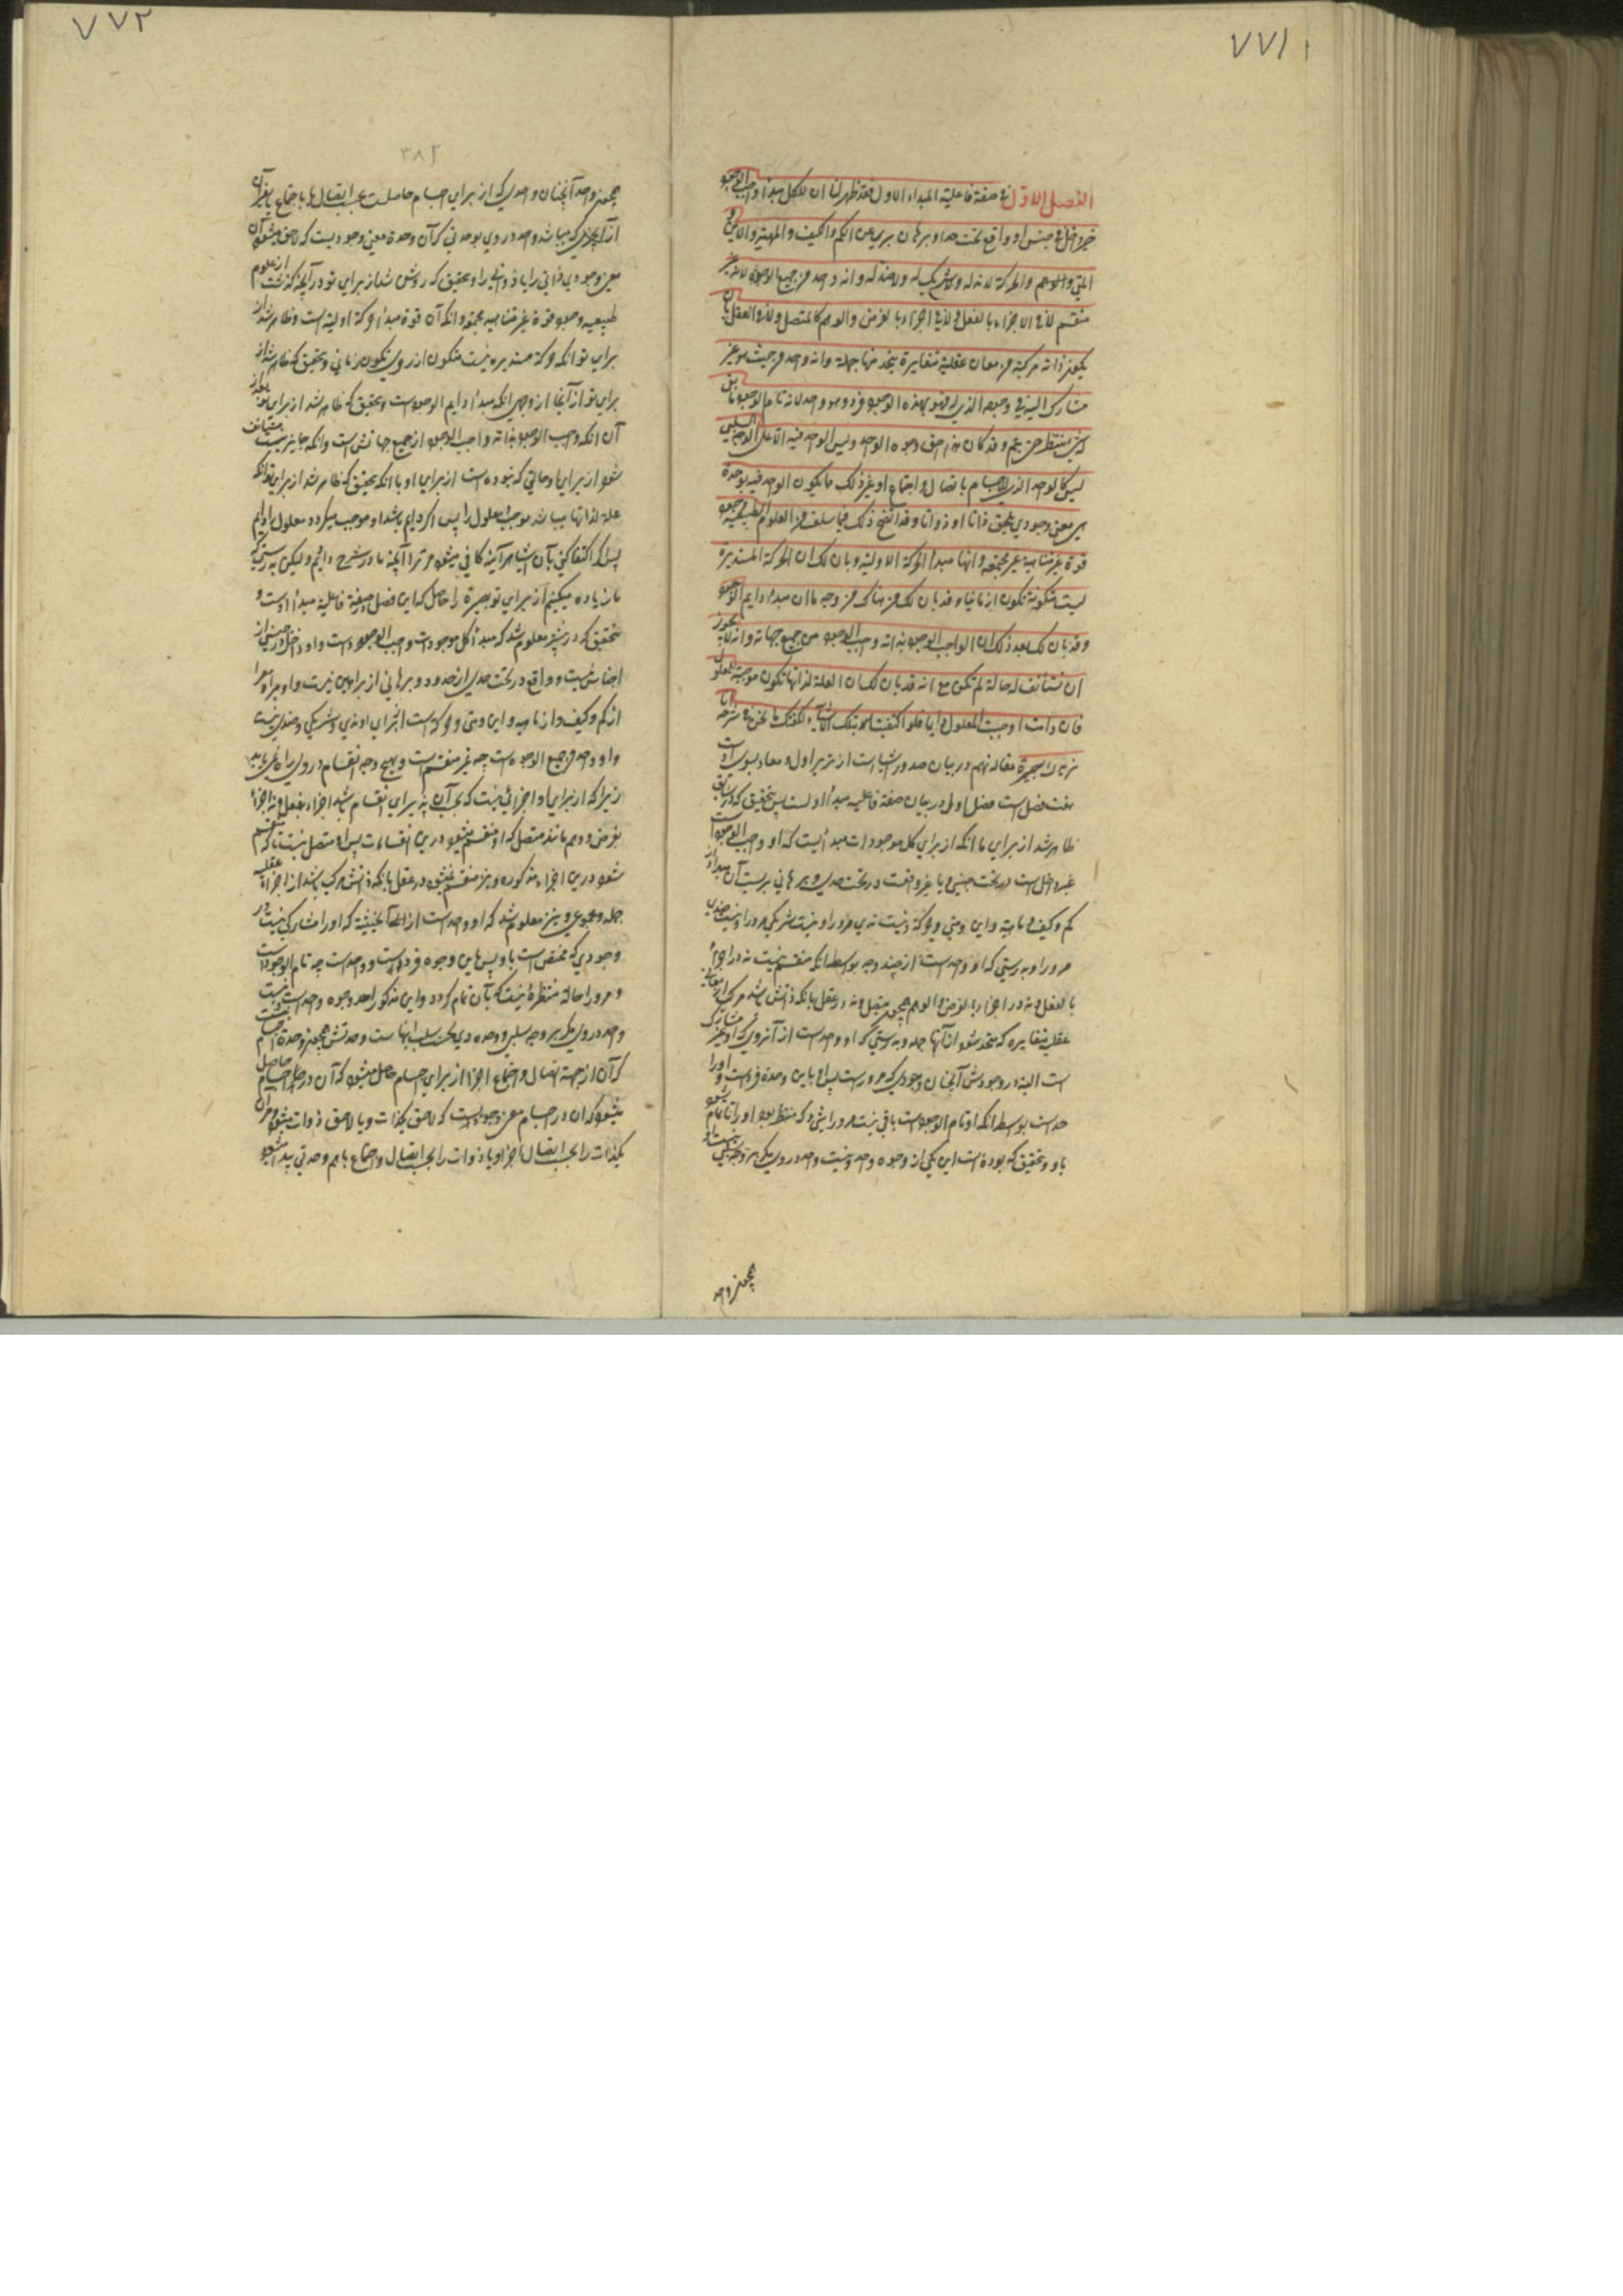 ٧٧١
الفصل الاول في صفة فاعلية المبداء الاول فقد ظهر لنا ان للكل مبدأ واجب الوجود
غير داخل في جنس او واقع تحت حد او برهان بري عن الكم والكيف والمهية والاين
المتى والحركة لا ند له ولا شريك له ولا ضد له وانه واحد من جميع الوجوه لانه غير
منقسم لا في الاجزاء بالفعل ولا في الاجزاء بالفرض والوهم كالمتصل ولا في العقل بان
يكون ذاته مركبة من معان عقلية متغايرة يتحد منها جملة وانه واحد من حيث هو غير
مشارك البتة في وجوده الذي له فهو بهذه الوجوه فرد وهو واحد لانه تام الوجود ما بقي
له شي ينتظر حتى يتم وقد كان هذا احد وجوه الواحد وليس الواحد فيه الا على الوجه السلبي
ليس كالواحد الذي للاجسام باتصال واجتماع او غير ذلك مما يكون الواحد فيه بوحدة
هي معنى وجودي يلحق ذاتا او ذواتا وقد اتضح ذلك فيما سلف من العلوم الطبيعية وجود
قوة غير متناهية غير مجسمة وانها مبدأ الحركة الاولية وبان لك ان الحركة المستديرة
ليست متكونة تكونا زمانيا وقد بان لك من هناك من وجه ما ان مبدأ دايم الوجود
وقد بان لك بعد ذلك ان الواجب الوجود بذاته واجب الوجود من جميع جهاته وانه لا يجوز
ان تستأنف له حالة لم تكن مع انه قد بان لك ان العلة لذاتها تكون موجبة المعلول
فان دامت اوجبت المعلول دايما فلو اكتفيت بتلك الاشياء لكفتك ما نحن في شرحه
نزيدك بصيرة مقاله نهم در بيان صدور اشيا است از تدبير اول ومعاد بسوي او
هفت فصل است فصل اول در بيان صفة فاعليه مبدأ اول است پس بتحقيق كه
ظاهر شد از براي ما انكه از براي كل موجودات مبدأ ايست كه او واجب الوجود است
غير داخل است در تحت جنس ويا غير واقعست در تحت حدي وبرهاني بريست آن مبدأ از
كم وكيف وماهية واين ومتى وحركة ونيست ندي مر او را ونيست شريكي مر او را ونيست ضدي
مر او را وبدرستي كه او واحد است از چند وجه بواسطه انكه منقسم نيست نه در اجزاء
بالفعل ونه در اجزاء بالفرض والوهم همچو متصل ونه در عقل بانكه ذاتش باشد مركب از معاني
عقليه متغايره كه متحد شود از آنها جمله وبدرستي كه او واحد است از آنروي كه او غير مشارك
است البته در وجودش آنچنان وجودي كه مر او راست پس او باين وحدة فرد است و
واحدست بواسطه انكه او تام الوجود است باقي نيست مر او را شي كه منتظر بود او را تا تمام شود
باو وبتحقيق كه بوده است اين يكي از وجوه واحد ونيست واحد در وي مگر بر وجه سلبي
همچنو واحد
٧٧٢
٣٨٢
همچنو واحد آنچنان واحدي كه از براي اجسام حاصلست بحسب اتصال يا باجتماع يا بغير آن
از آنچيزي كه ميباشد واحد در وي بوحدتي كه آن وحدة معني وجوديست كه لاحق ميشود آن
معني وجودي ذاتي را يا ذواتي را وبتحقيق كه روشن شد از براي تو در آنچه گذشت از علوم
طبيعيه وجود قوة غير متناهيه مجسم وانكه آن قوة مبدأ حركة اوليه است وظاهر شد از
براي تو انكه حركة مستديره نيست متكون از روي تكون زماني وتحقيق كه ظاهر شد از
براي تو از آنجا از وجهي انكه مبدأ دايم الوجود است وبتحقيق كه ظاهر شد از براي تو بعد از
آن انكه واجب الوجود بذاته واجب الوجود از جميع جهاتش است وانكه جايز نيست مستأنف
شود از براي او حالتي كه نبوده است از براي او با انكه بتحقيق كه ظاهر شد از براي تو انكه
علة لذاتها ميباشد موجب معلول را پس اگر دايم باشد او موجب ميگردد معلول را دايم
پس اگر اكتفا كني بآن اشيا هر آينه كافي ميشود مر ترا آنچه ما در شرح وانيم وليكن بدرستي كه
ما زياده ميكنيم از براي تو بصيرة را حاصل كه اين فصل در صفة فاعليه مبدأ اول است و
بتحقيق كه در پيش معلوم شد كه مبدأ كل موجودات واجب الوجود است واو داخل در جنسي از
اجناس نيست وواقع در تحت حدي از حدود وبرهاني از براهين نيست واو مبرا ومعرا
از كم وكيف واز ماهيه واين ومتى وحركة است از براي او ندي وشريكي وضدي نيست
واو واحد من جميع الوجوه است چه غير منقسم است وبهيچ وجه انقسام در وي راه نمي يابد
زيرا كه از براي او اجزائي نيست كه بآن پذيراي انقسام باشد اجزاء بفعل ونه اجزاء
بفرض ووهم مانند متصل كه او منقسم ميشود درين انقسامات پس او متصل نيست تا كه منقسم
شود درين اجزاء مذكوره ونيز منقسم نميشود در عقل بانكه ذاتش مركب باشد از اجزاء عقليه
جمله ومجموعي ونيز معلوم شد كه او واحد است از آنحيثيه كه او را مشاركي نيست در
وجودي كه مختص است باو پس باين وجوه فردست وواحد است چه تام الوجود است
ومر او را حالة منتظرة نيست كه بآن تمام گردد واين مذكور احد وجوه واحد است ونيست
واحد در وي مگر بر وجه سلبي ووحده وي تحت سلب اينهاست وحدتش همچنو وحدة اجسام نيست
كه آن از جهة اتصال واجتماع اجزا از براي اجسام حاصل ميشود كه آن در اجسام حاصل
ميشود كه آن در اجسام معني وجوديست كه لاحق يكذات ويا لاحق ذوات ميشود ومر آن
يكذات را بحسب اتصال اجزا ويا ذوات را بحسب اتصال واجتماع باهم وحدتي پيدا شود